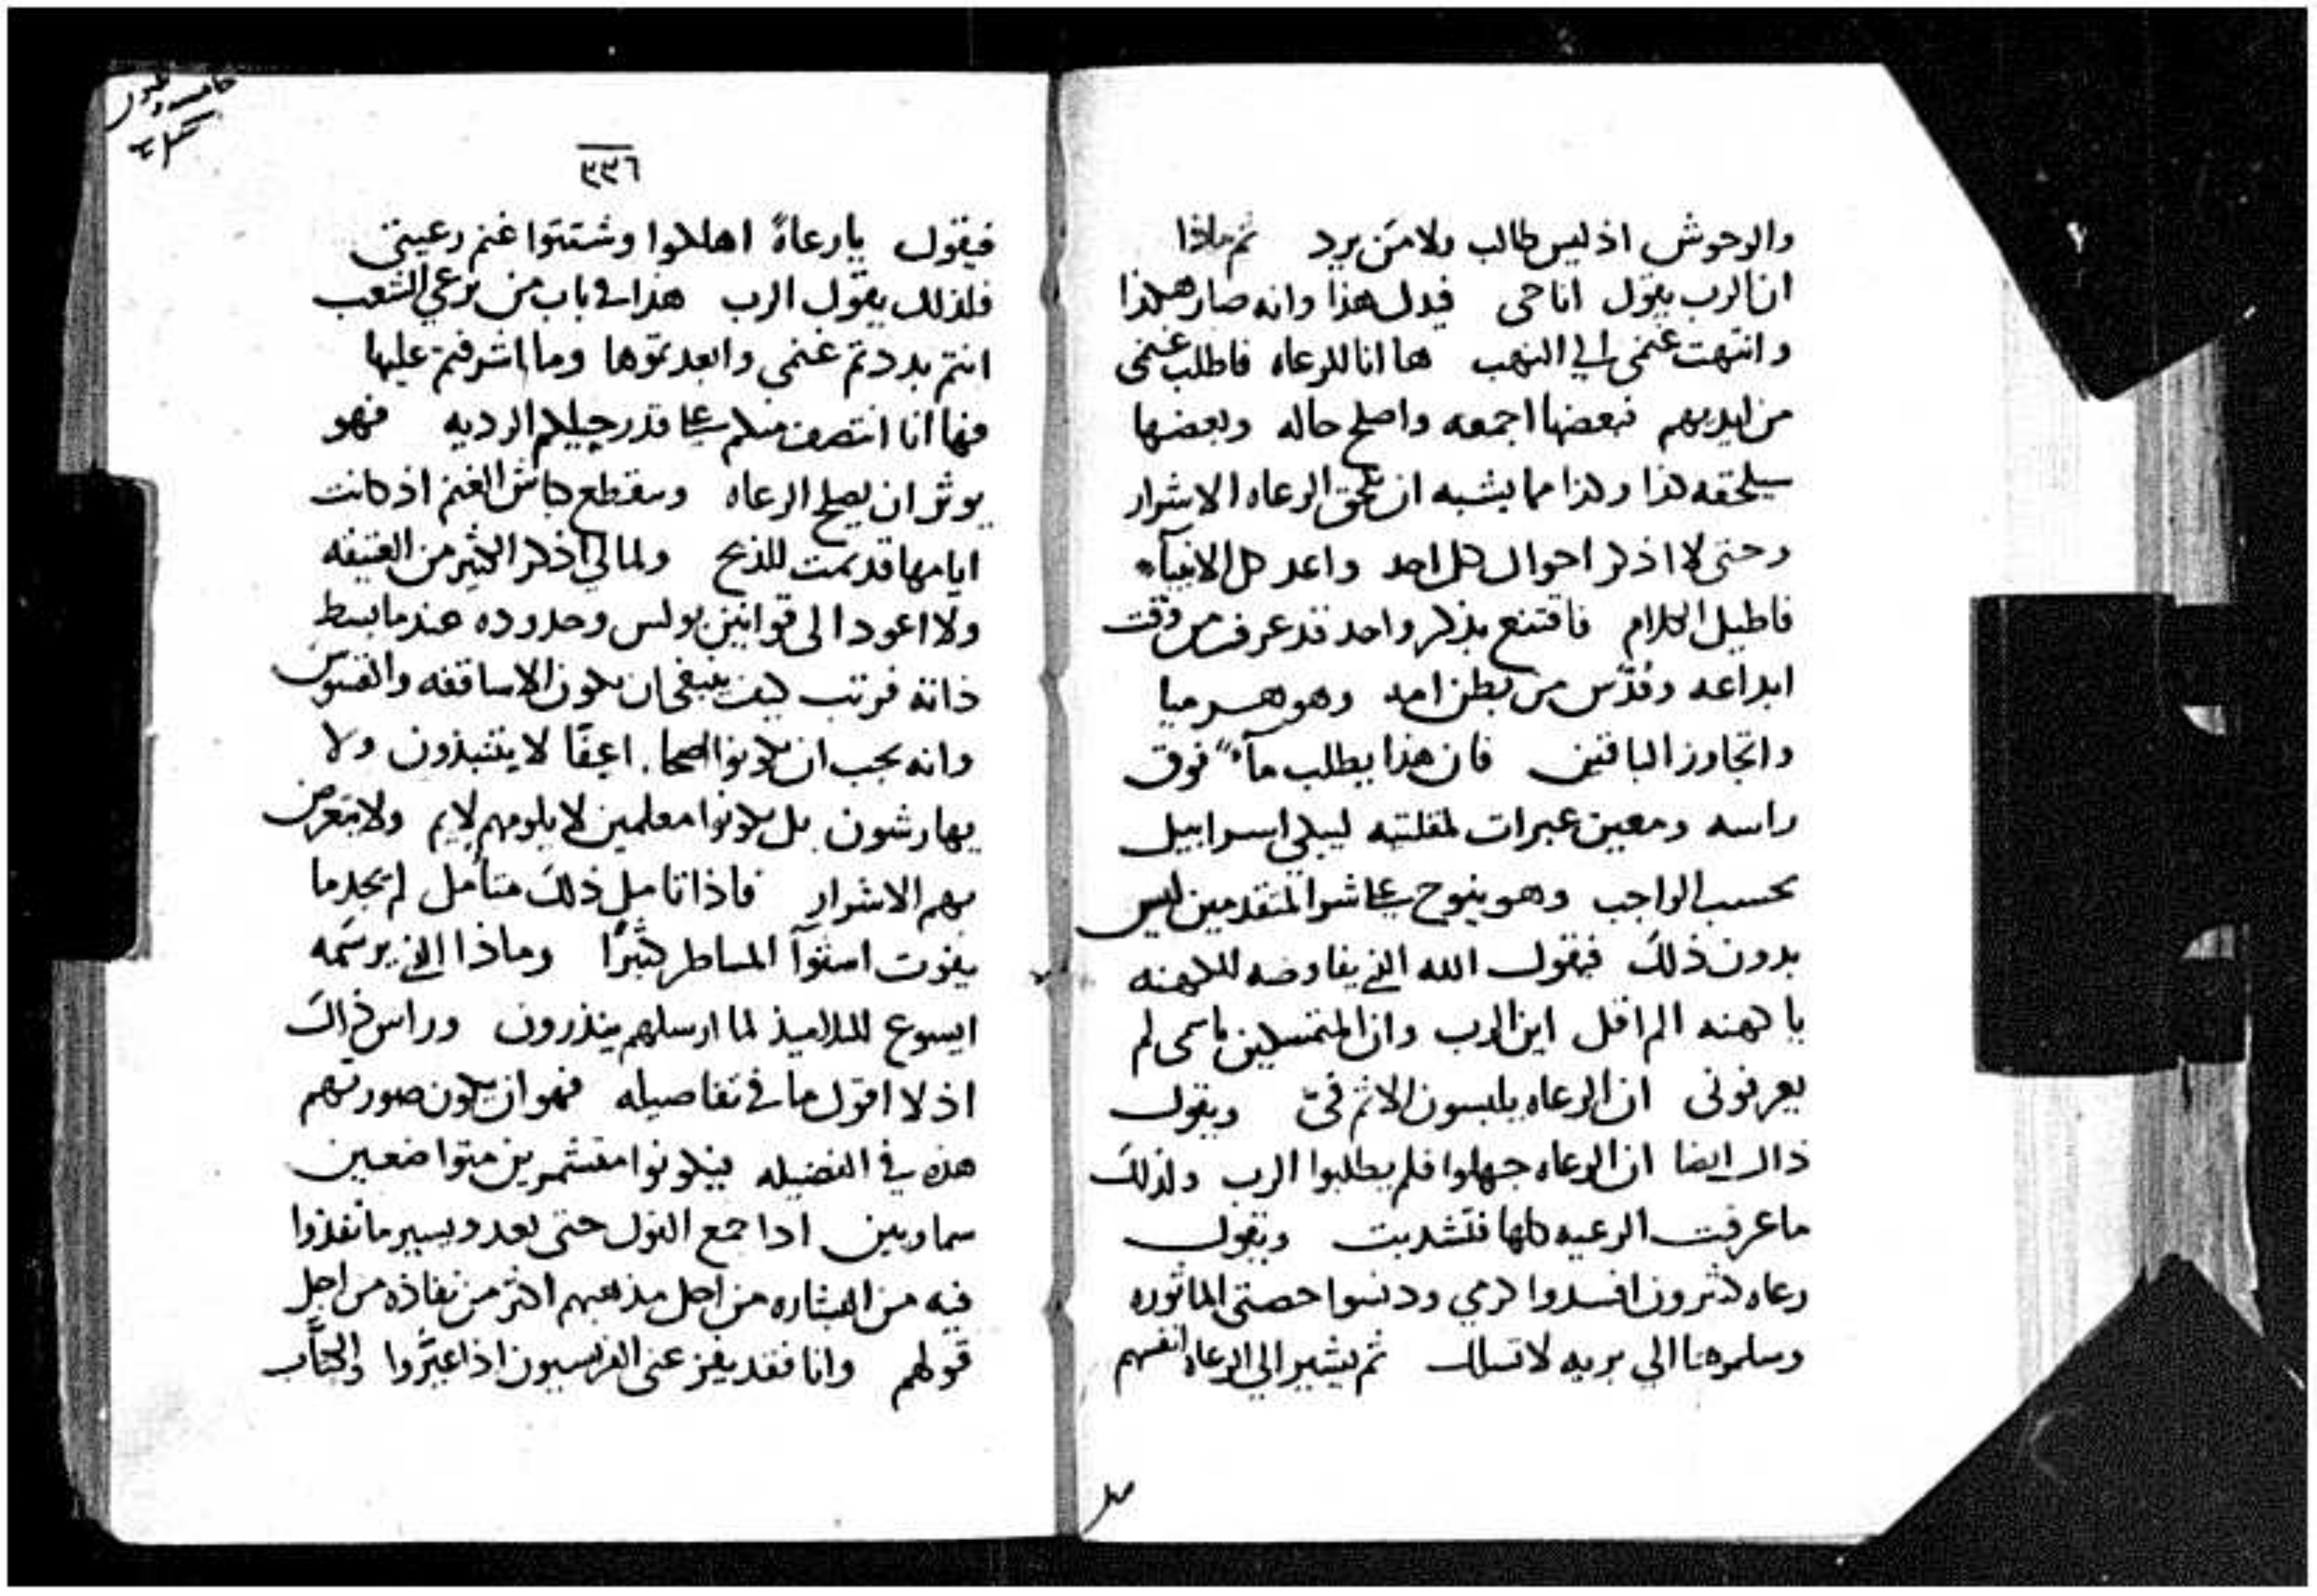 والوحوش اذ ليس طالب ولا من يرد ثم ماذا
ان الرب يقول انا حى فبدل هذا وانه صار هكذا
وانتهت غنمى الي النهب ها انا للرعاه فاطلب غنمى
من ايديهم فبعضها اجمعه واصلح حاله وبعضها
سيلحقه كذا وكذا مما يشبه ان يلحق الرعاه الاشرار
وحتى لا اذكر احوال كل احد واعد كل الانبيآء
فاطيل الكلام فاقتنع بذكر واحد قد عرف من وقت
ابداعه وقدّس من بطن امه وهو هرميا
واتجاوز الباقين فان هذا يطلب مآءً فوق
راسه ومعين عبرات لمقلتيه ليبكي اسراييل
بحسب الواجب وهو ينوح على شر المتقدمين ليس
بدون ذلك فيقول الله الذي يفاوضه للكهنه
يا كهنه الم اقل اين الرب وان المتمسكين باسمى لم
يعرفونى ان الرعاه يلبسون الاثم فيّ ويقول
ذاك ايضا ان الرعاه جهلوا فلم يطلبوا الرب ولذلك
ما عرفت الرعيه كلها فتشديت ويقول
رعاه كثرون افسدوا كرمي ودنسوا حصتى الماثوره
وسلموها الي بريه لا تسلك ثم يشير الي الرعاه انفسهم
٣٣٦
فيقول يا رعاةً اهلكوا وشتتوا غنم رعيتى
فلذلك يقول الرب هذا في باب من يرعي الشعب
انتم بددتم غنمي وابعدتموها وما اشرفتم عليها
فها انا انتصف منكم على قدر حيلكم الرديه فهو
يوثر ان يصيح الرعاه وسقطع كباش الغنم اذ كانت
ايامها قد تمت للذبح ولما لي اذكر الكثير من العتيقه
ولا اعود الى قوانين بولس وحدوده عندما بسط
ذاته فرتب كيف ينبغي ان يكون الاساقفه والقسوس
وانه يجب ان يكونوا اعفّا لا يتنبذون ولا
يهارشون بل يكونوا معلمين لا يلومهم لايم ولا يتعرض
بهم الاشرار فاذا تامل ذلك متأمل لم يجد ما
يفوت استوآ المساطر كثيرًا وماذا الذي يرسمه
ايسوع للتلاميذ لما ارسلهم ينذرون وراس ذاك
اذ لا اقول ما في تفاصيله فهو ان يكون صورتهم
هذه في الفضيله فيكونوا متشمرين متواضعين
سماويين اذا جمع القول حتى بعد ويسير ما نفذوا
فيه من البشاره من اجل مذهبهم اكثر من نفاذه من اجل
قولهم وانا فقد يفزعنى الفريسيون اذا عيّروا والكتّاب